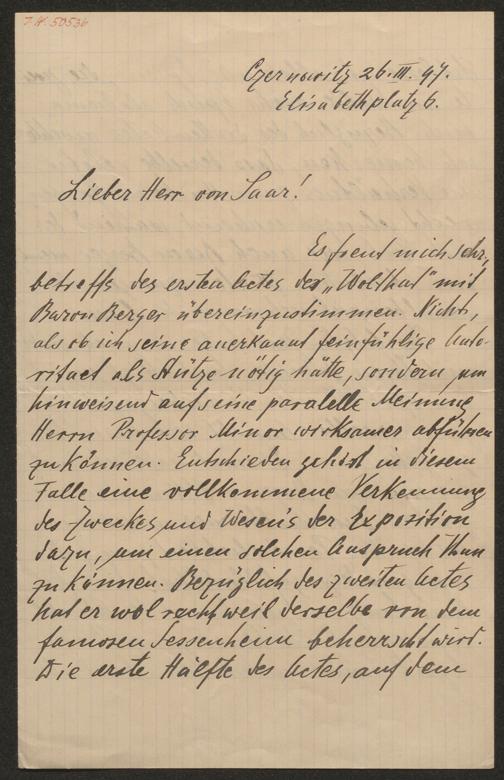 J.N. 50536
Czernowitz 26. III. 97.
Elisabethplatz 6.
Lieber Herr von Saar!
Es freut mich sehr,
betreffs des ersten Actes der „Wolthat" mit
Baron Berger übereinzustimmen. Nicht,
als ob ich seine anerkant feinfühlige Auto-
ritaet als Stütze nötig hätte, sondern um
hinweisend auf seine paralelle Meinung
Herrn Professor Minor wirksamer abführen
zu können. Entschieden gehört in diesem
Falle eine vollkommene Verkennung
des Zweckes und Wesens der Exposition
dazu, um einen solchen Ausspruch thun
zu können. Bezüglich des zweiten Actes
hat er wol recht weil derselbe von dem
famosen Sessenheim beherrscht wird.
Die erste Hälfte des Actes, auf dem